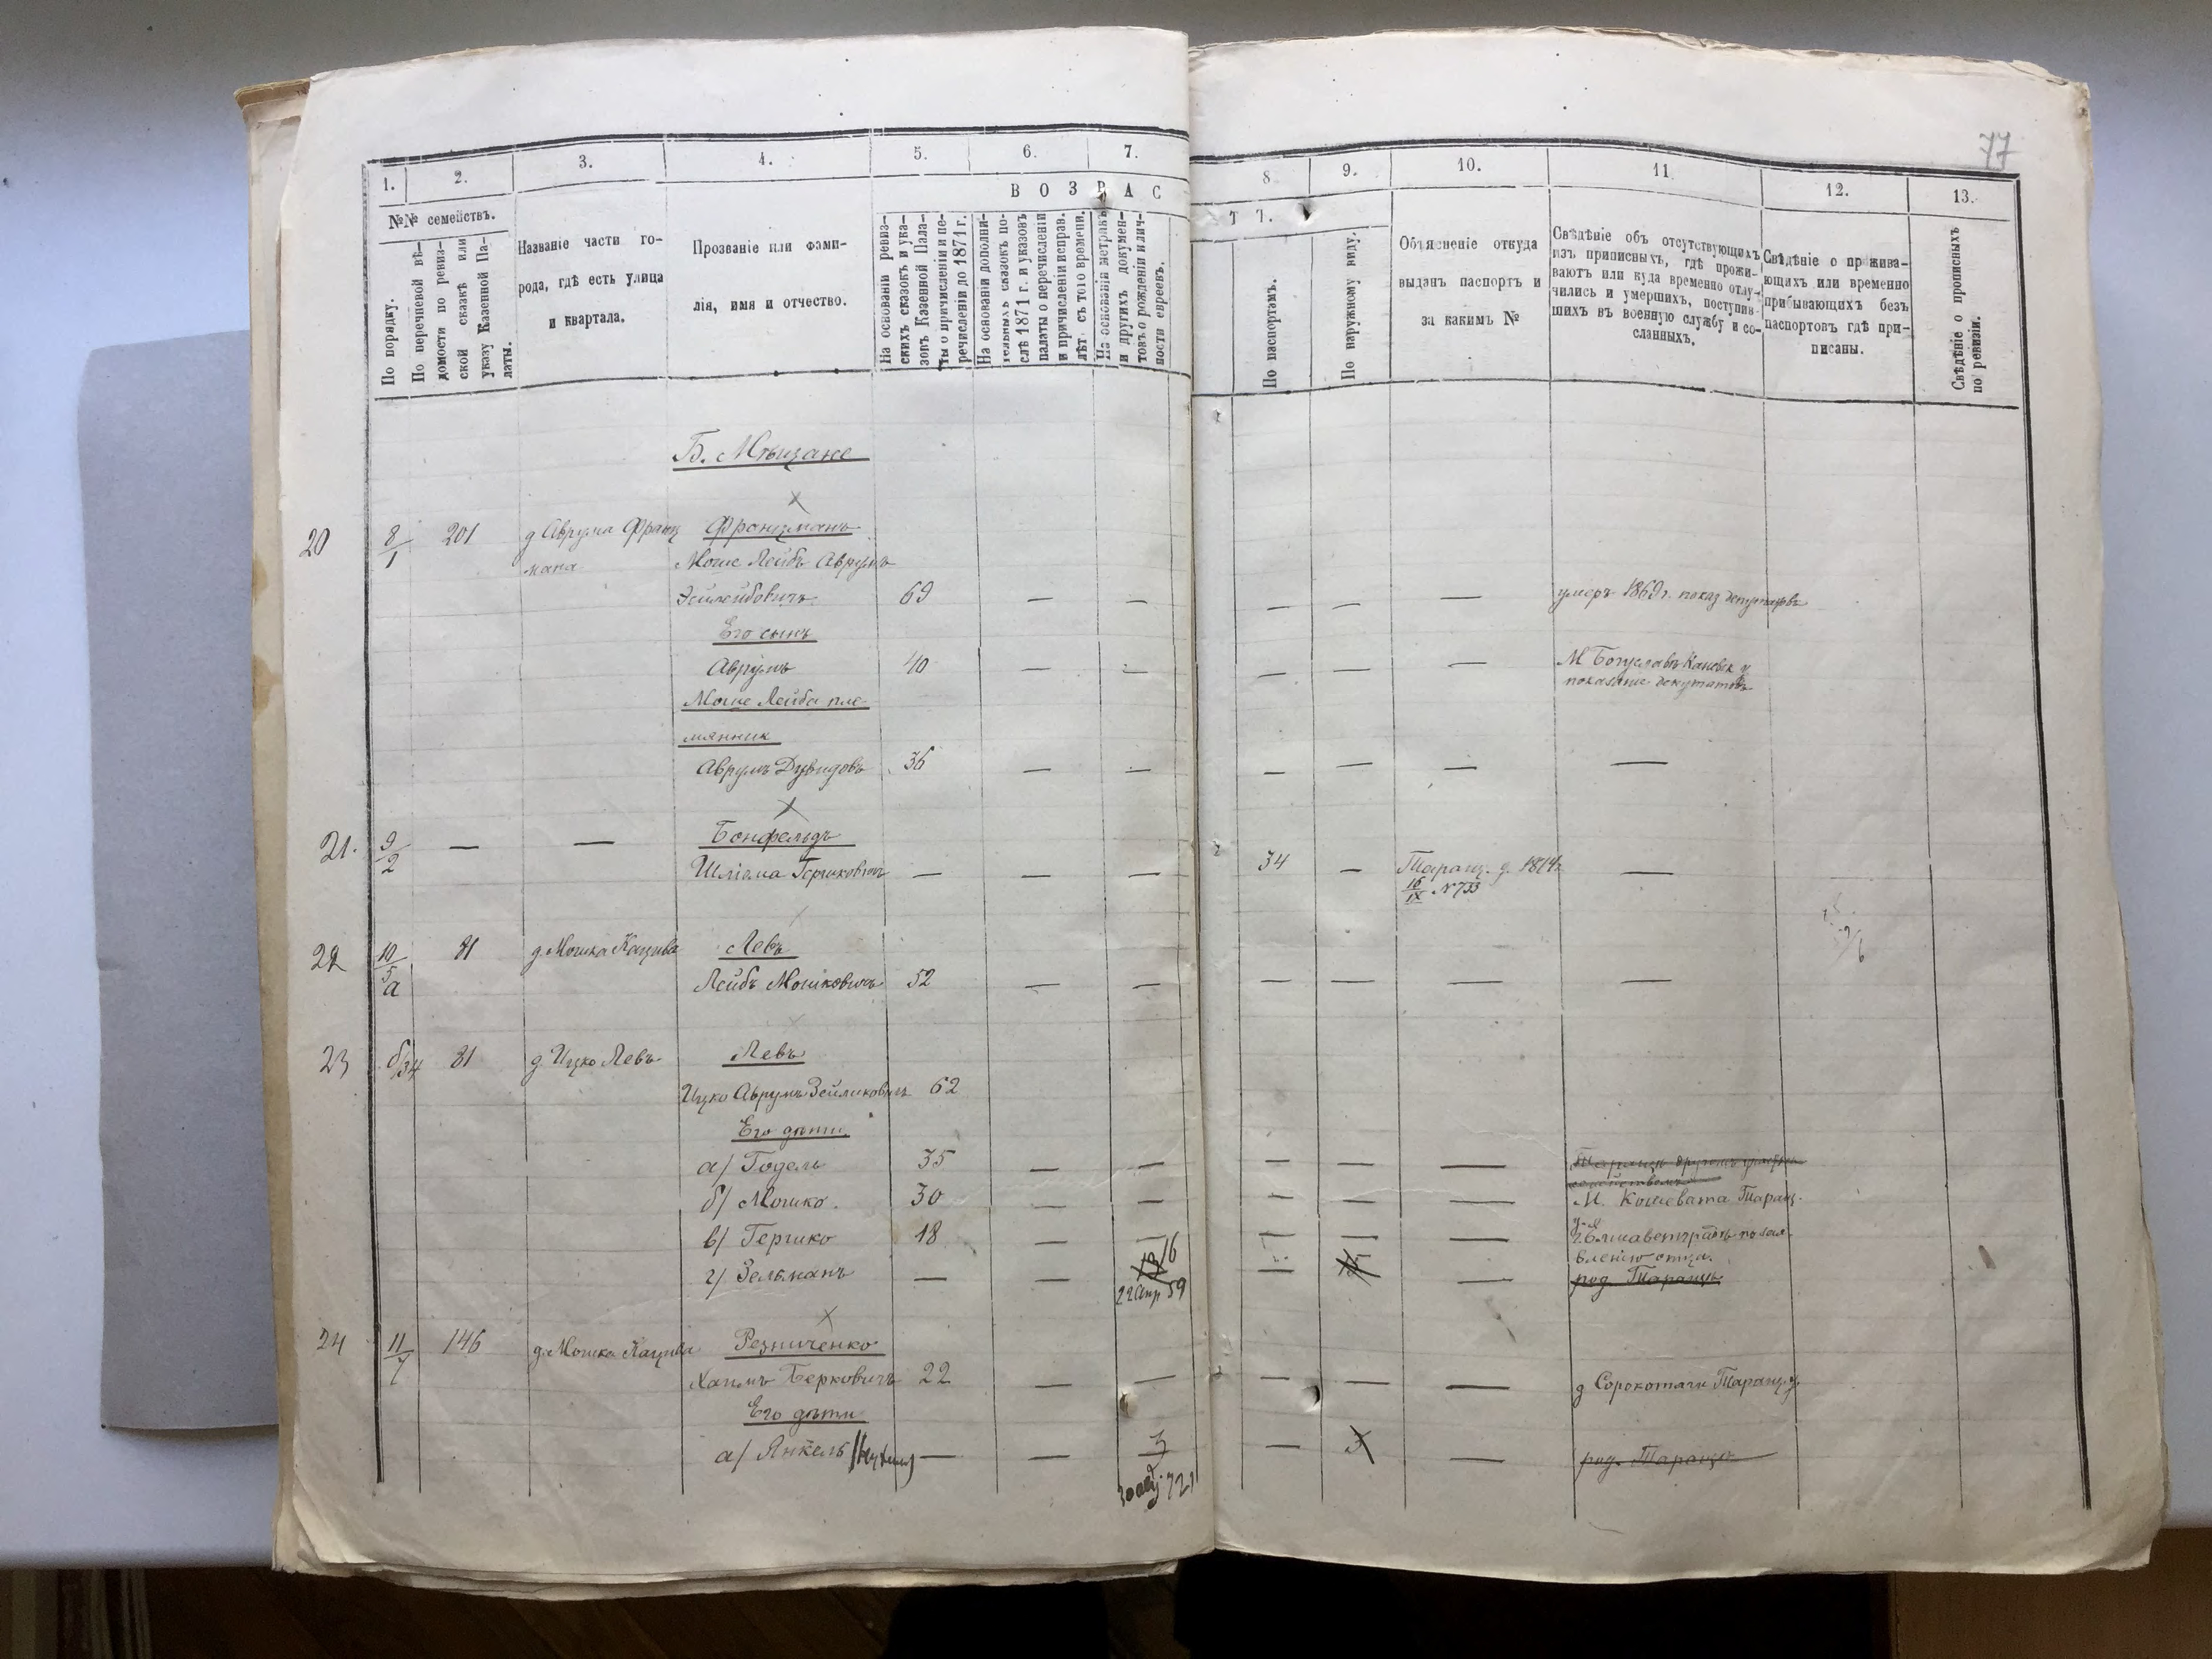 77
1. 2. 3. 4. 5. 6. 7. 8 9. 10. 11. 12. 13.
В О З Р А С Т Ъ.
№№ семействъ.
По порядку.
По перечневой вѣ-
домости по ревиз-
ской сказкѣ или
указу Казенной Па-
латы.
Названіе части го-
рода, гдѣ есть улица
и квартала.
Прозваніе или фами-
лія, имя и отчество.
На основаніи ревиз-
скихъ сказокъ и ука-
зовъ Казенной Пала-
ты о причисленіи и пе-
речисленіи до 1871 г.
На основаніи дополни-
тельныхъ сказокъ по-
слѣ 1871 г. и указовъ
палаты о перечисленіи
и причисленіи исправ.
лѣт. съ того времени.
На основаніи метрикъ
и другихъ докумен-
товъ о рожденіи и лич-
ности евреевъ.
По паспортамъ.
По наружному виду.
Объясненіе откуда
выданъ паспортъ и
за какимъ №
Свѣдѣніе объ отсутствующихъ
изъ приписныхъ, гдѣ прожи-
ваютъ или куда временно отлу-
чились и умершихъ, поступив-
шихъ въ военную службу и со-
сланныхъ.
Свѣдѣніе о прожива-
ющихъ или временно
прибывающихъ безъ
паспортовъ гдѣ при-
писаны.
Свѣдѣніе о прописныхъ
по ревизіи.
Б. Мѣщане
20 8/1 201 д Аврума Франц Фронцманъ
мана Моше Лейбъ Аврумъ
69 — — — — — умеръ 1869 г. показ депутатовъ
Его сынъ
Аврумъ 40 — — — — — М Богуславъ Каневск у
показаніе депутатовъ
Моше Лейба пле-
мянник
Аврумъ Дувидовъ 36 — — — — — —
21. 9/2 — — Бонфельдъ
Шліома Гершковичъ — — — 34 — Таращ. у. 1874 г —
16/IX №733
22 10/5 а 81 д Мошка Левъ
Лейбъ Мошковичъ 52 — — — — — —
23 б/34 81 д Ицко Левъ Левъ
Ицко Аврумъ Зейликовичъ 62
Его дѣти
а) Годель 35 — — — — —
б) Мошко. 30 — — — — — М. Кошевата Таращ.
у-я
в) Гершко 18 — — — — — г. Елисаветградъ по заяв-
влению отца.
г) Зельманъ — — 16 — — род. Тараща
22 апр 59
24 11/7 146 д. Мошка Резниченко
Хаимъ Берковичъ 22 — — — — — д Сорокотяги Таращ. у.
Его дѣти
а) Янкель — — 3 — — род. Тараща